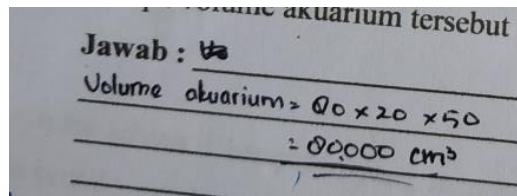 volume akuarium tersebut
Jawab :
Volume akuarium = 80 x 20 x 50
= 80.000 cm³